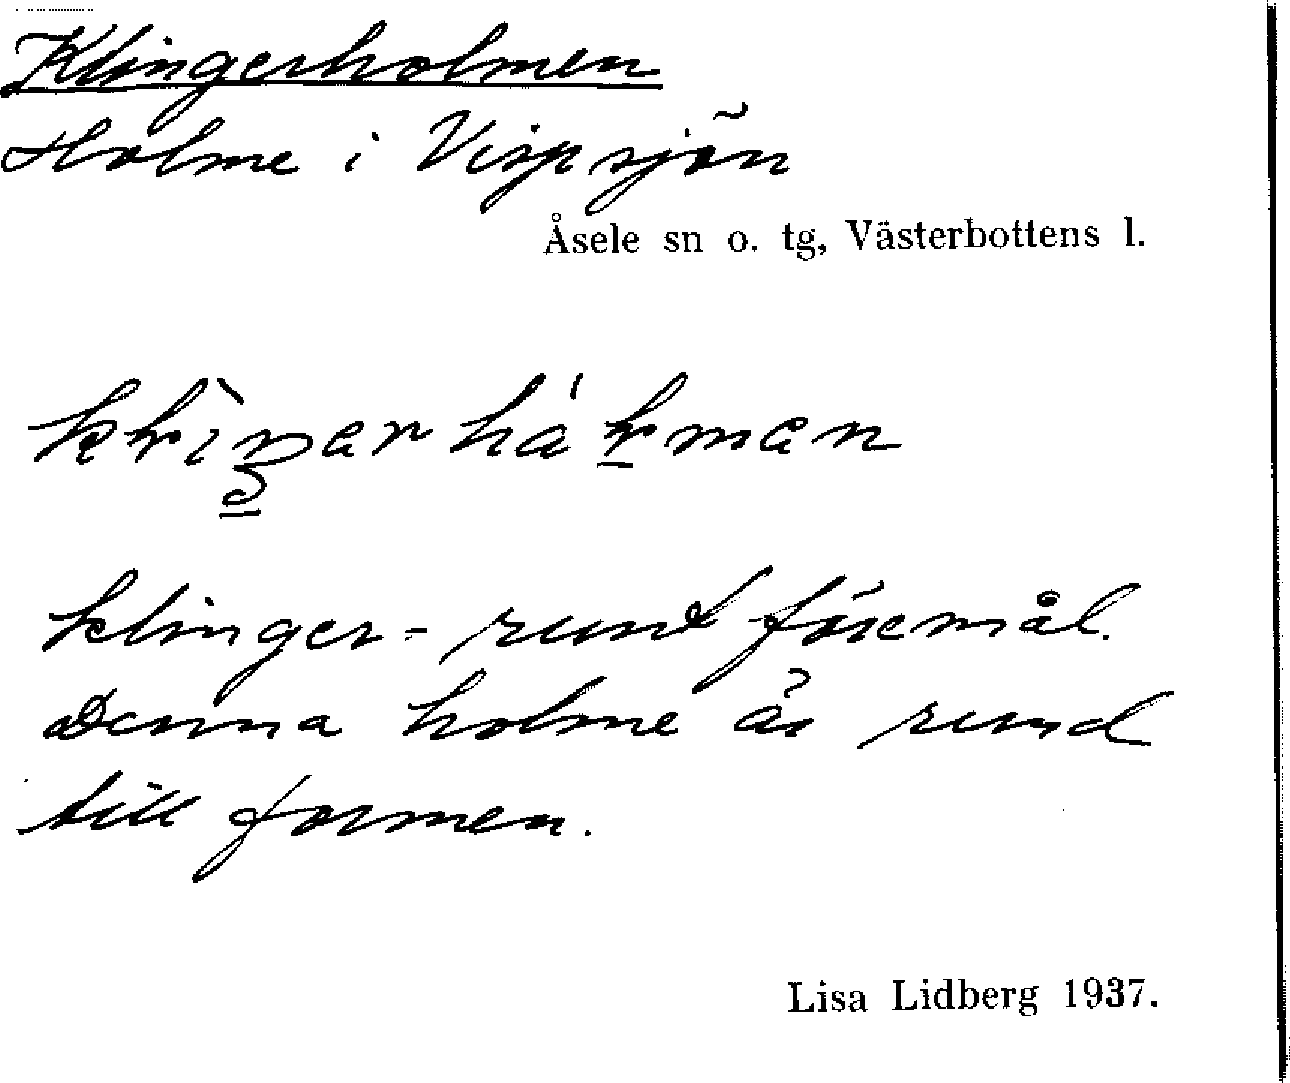 Klingerholmen
Holme i Vispsjön
Åsele sn o. tg, Västerbottens l.
klinger = runt föremål.
Denna holme är rund
till formen.
Lisa Lidberg 1937.